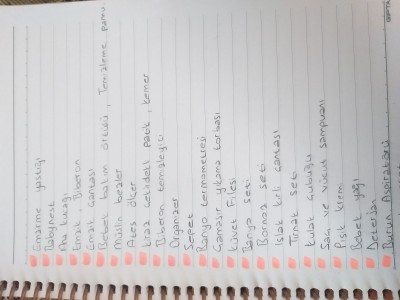 Emzirme yastığı
Babynest
Ana kucağı
Emzik, Biberon
Emzik çantası
Bebek bakım örtüsü, Temizleme pamu
Müslin bezler
Ateş ölçer
Kiraz çekirdekli patik, kemer
Biberon temizleyici
Organizer
Sepet
Banyo termometresi
Çamaşır yıkama torbası
Küvet Filesi
Banyo seti
Bornoz seti
Islak kirli çantası
Tırnak seti
Kulak çubuğu
Saç ve vücut şampuanı
Pişik kremi
Bebek yağı
Deterjan
Burun Aspiratörü